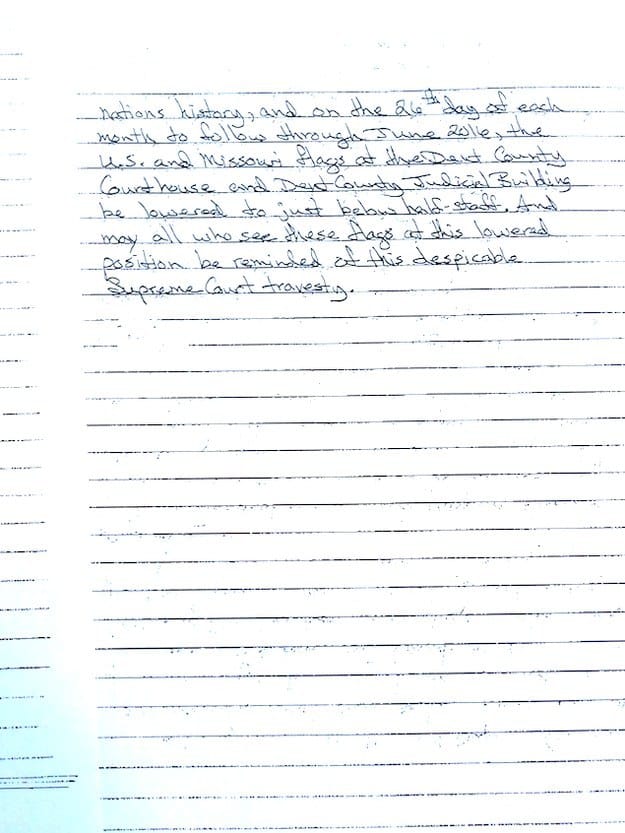 nations history, and on the 26th day of each
month to follow through June 2016, the
U.S. and Missouri flags at the Dent County
Courthouse and Dent County Judicial Building
be lowered to just below half-staff. And
may all who see these flags at this lowered
position be reminded of this despicable
Supreme Court travesty.